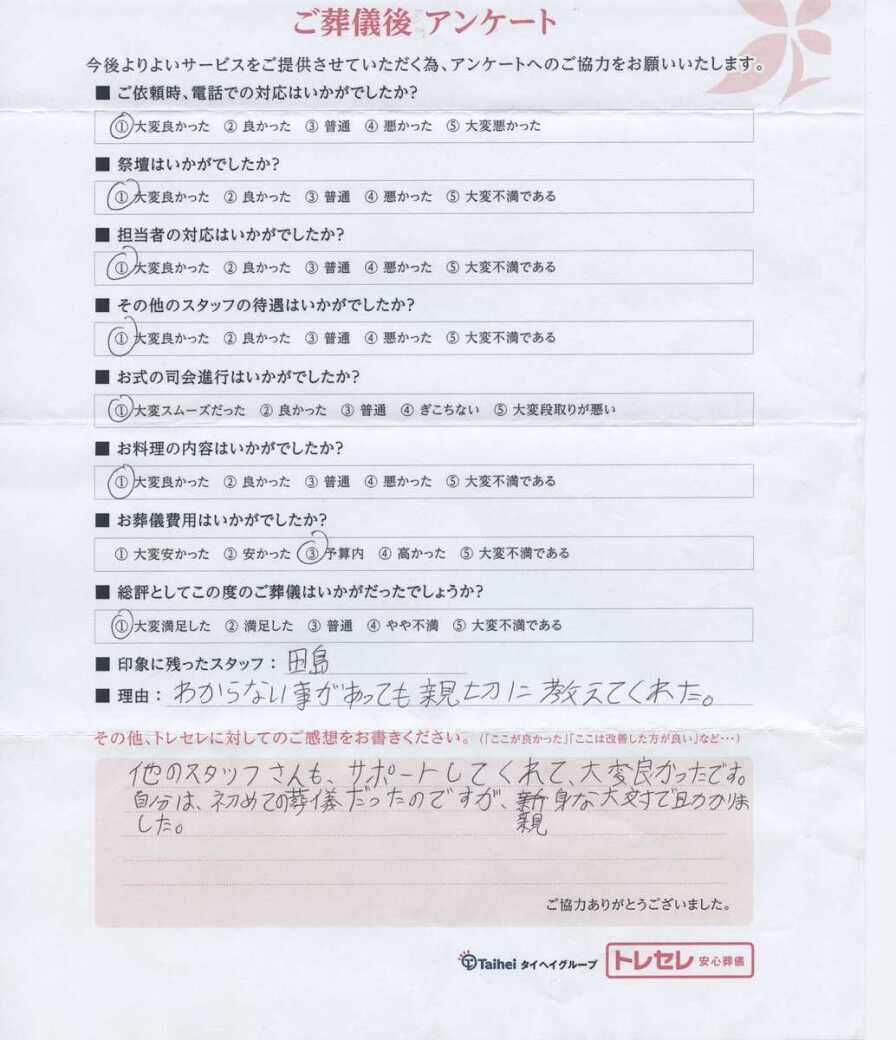 ご葬儀後 アンケート
今後よりよいサービスをご提供させていただく為、アンケートへのご協力をお願いいたします。
■ ご依頼時、電話での対応はいかがでしたか？
① 大変良かった ② 良かった ③ 普通 ④ 悪かった ⑤ 大変悪かった
■ 祭壇はいかがでしたか？
① 大変良かった ② 良かった ③ 普通 ④ 悪かった ⑤ 大変不満である
■ 担当者の対応はいかがでしたか？
① 大変良かった ② 良かった ③ 普通 ④ 悪かった ⑤ 大変不満である
■ その他のスタッフの待遇はいかがでしたか？
① 大変良かった ② 良かった ③ 普通 ④ 悪かった ⑤ 大変不満である
■ お式の司会進行はいかがでしたか？
① 大変スムーズだった ② 良かった ③ 普通 ④ ぎこちない ⑤ 大変段取りが悪い
■ お料理の内容はいかがでしたか？
① 大変良かった ② 良かった ③ 普通 ④ 悪かった ⑤ 大変不満である
■ お葬儀費用はいかがでしたか？
① 大変安かった ② 安かった ③ 予算内 ④ 高かった ⑤ 大変不満である
■ 総評としてこの度のご葬儀はいかがだったでしょうか？
① 大変満足した ② 満足した ③ 普通 ④ やや不満 ⑤ 大変不満である
■ 印象に残ったスタッフ： 田島
■ 理由： わからない事があっても親切に教えてくれた。
その他、トレセレに対してのご感想をお書きください。（「ここが良かった」「ここは改善した方が良い」など…）
他のスタッフさんも、サポートしてくれて、大変良かったです。
自分は、初めての葬儀だったのですが、身な大対で助かりま
親
した。
ご協力ありがとうございました。
Taihei タイヘイグループ トレセレ 安心葬儀